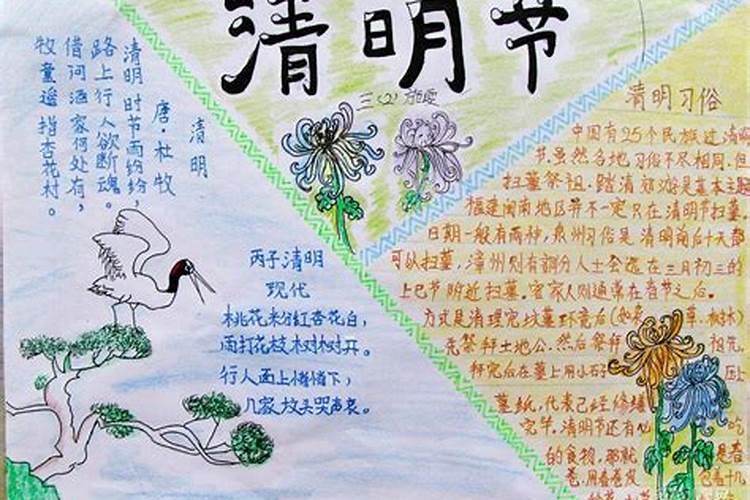 清明节
三(2) 施
清明
唐·杜牧
清明时节雨纷纷，
路上行人欲断魂。
借问酒家何处有，
牧童遥指杏花村。
丙子清明
现代
桃花粉红杏花白，
雨打花枝树树开。
行人面上悄悄下，
几家坟头哭声哀。
清明习俗
中国有25个民族过清明
节。虽然各地习俗不尽相同，但
扫墓祭祖、踏清郊游是基本主题
福建闽南地区并不一定只在清明节扫墓，
日期一般有两种，泉州习俗是清明前后十天都
可以扫墓，漳州则有部分人士会选在三月初三的
上巳节附近扫墓。客家人则通常在春节之后。
方式是清理完坟墓环境后(如 草、树木)
先祭拜土地公，然后祭拜 祖先，
拜完后在墓上用小石 压上
墓纸，代表已经修缮
完毕。清明节还有 的
的食物，那就 是春
卷，用春卷皮 包着十几